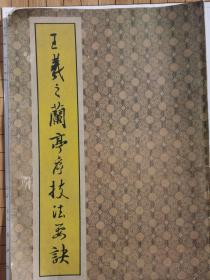 王羲之蘭亭序技法要訣